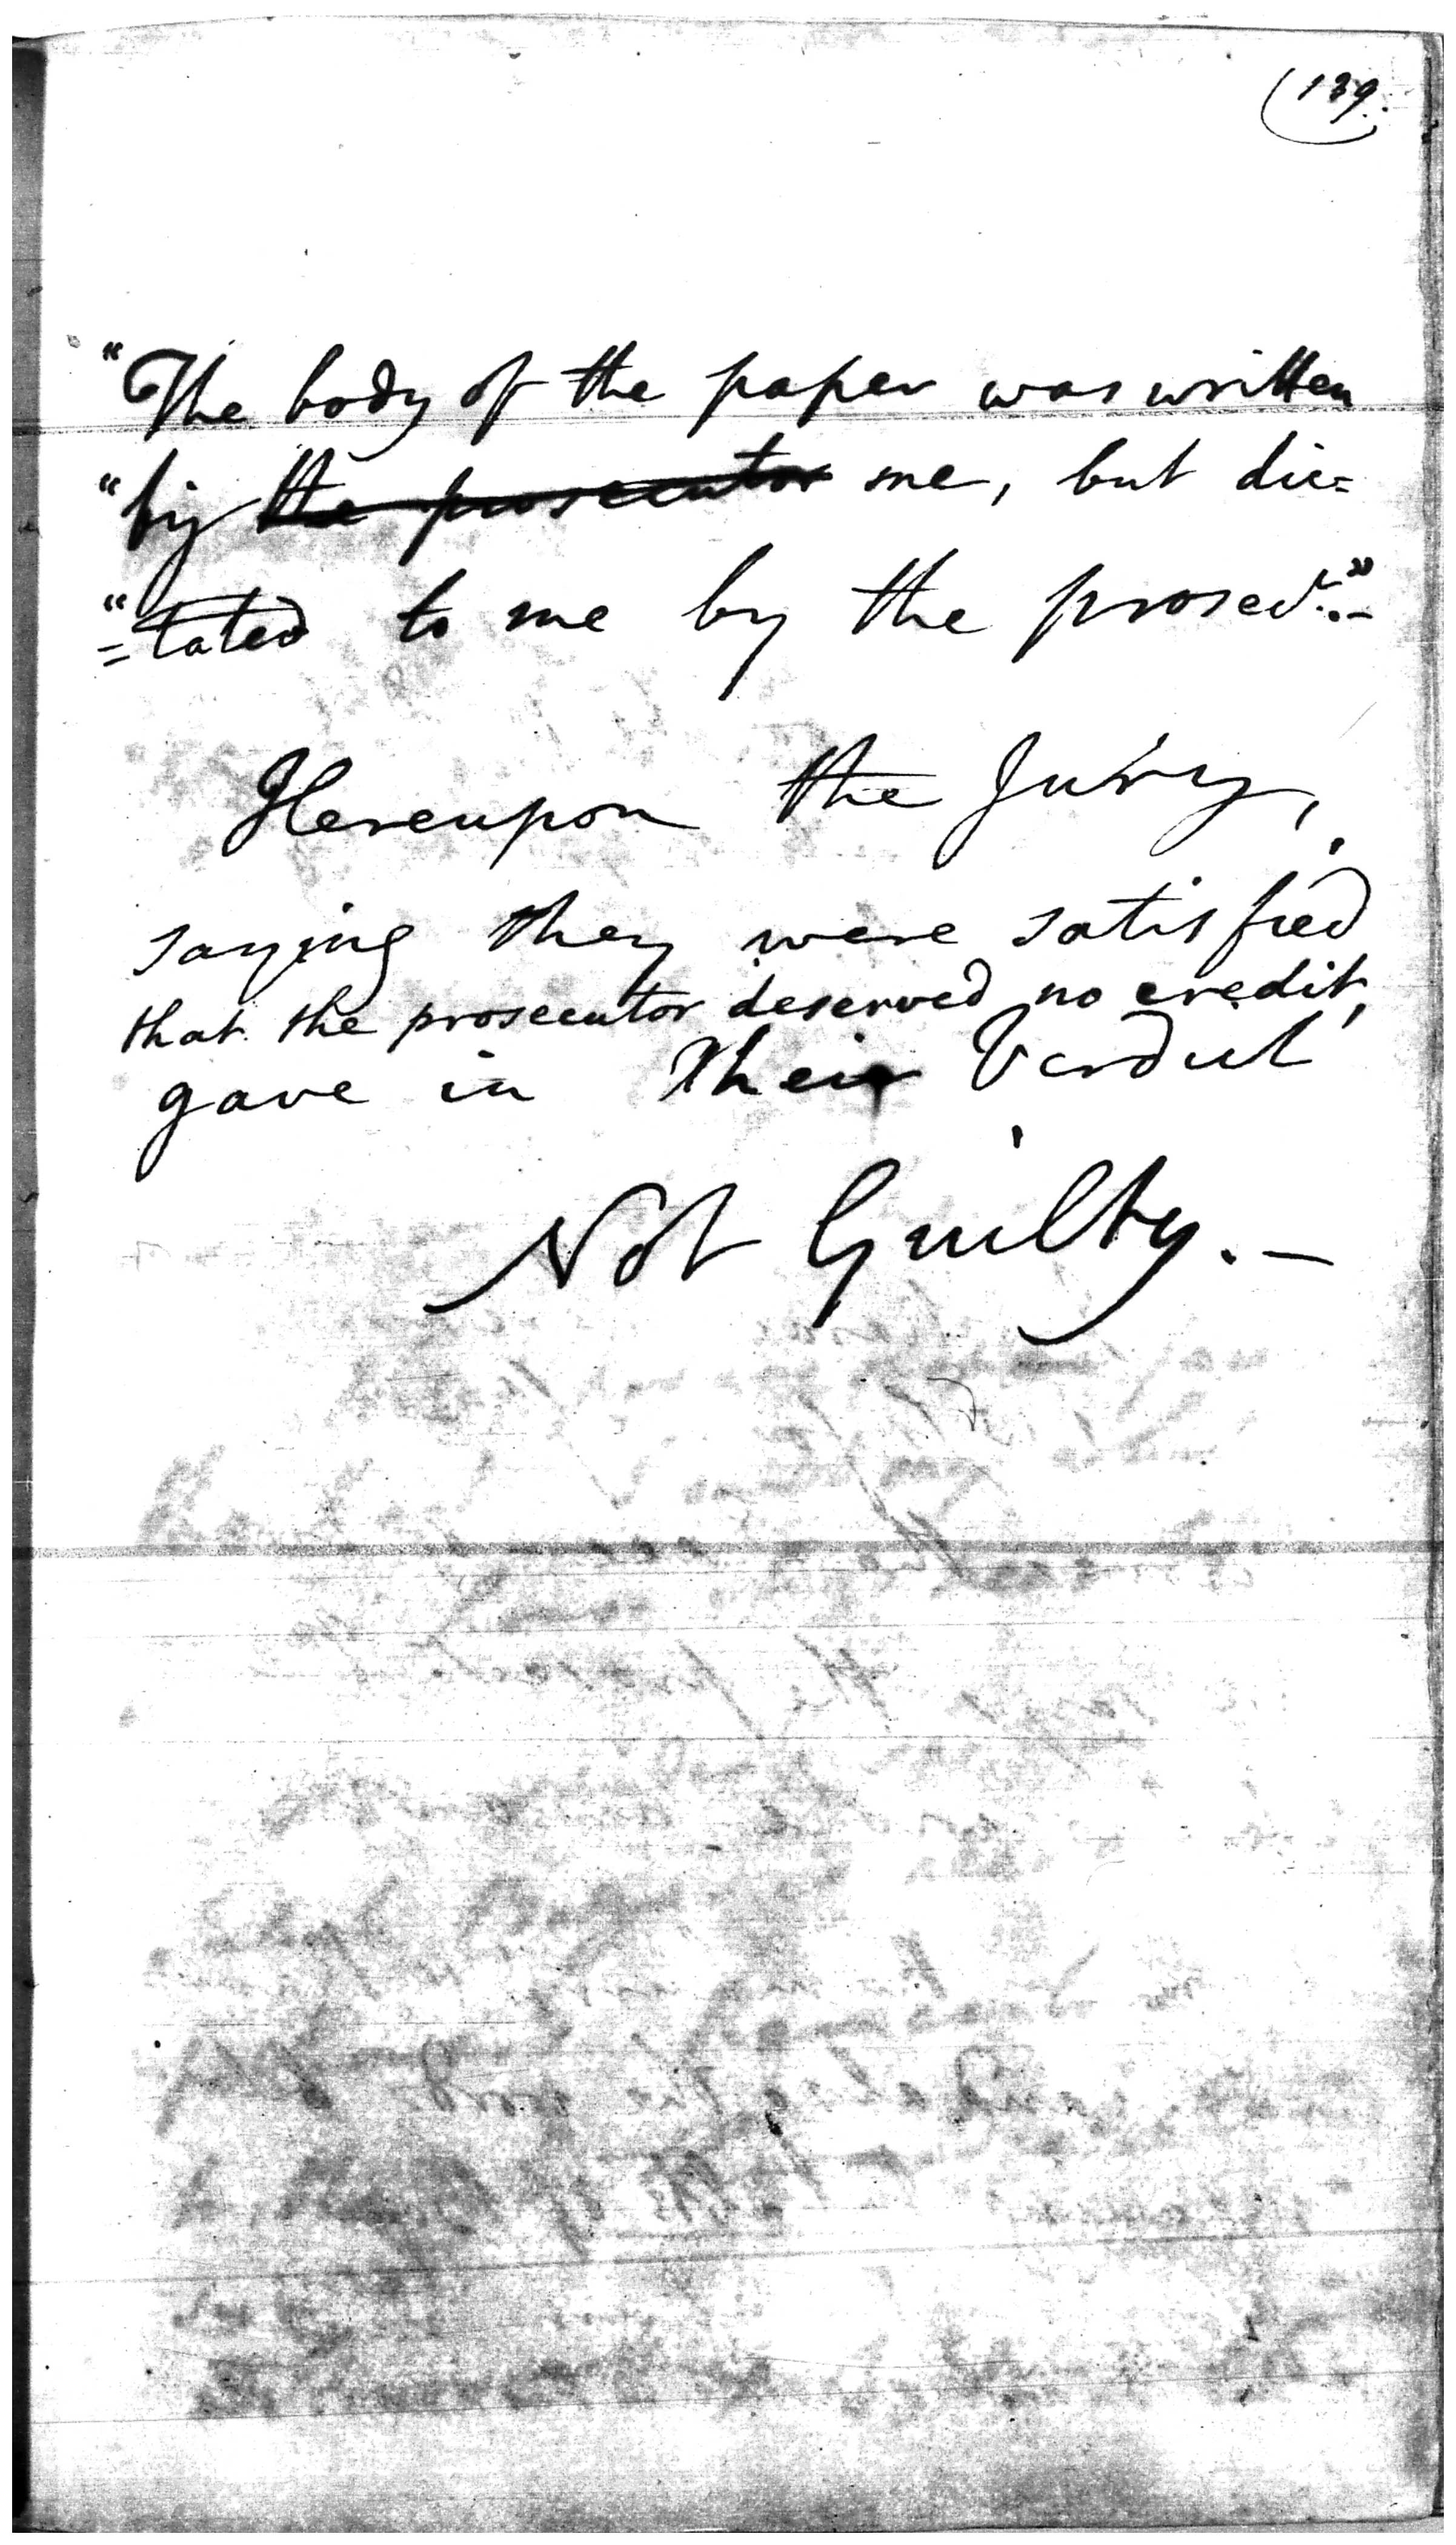 (139.
"The body of the paper was written
"by the prosecutor me, but dic=
"=tated to me by the prosecr."-
Hereupon the Jury,
saying they were satisfied
that the prosecutor deserved no credit,
gave in their Verdict
Not Guilty.-